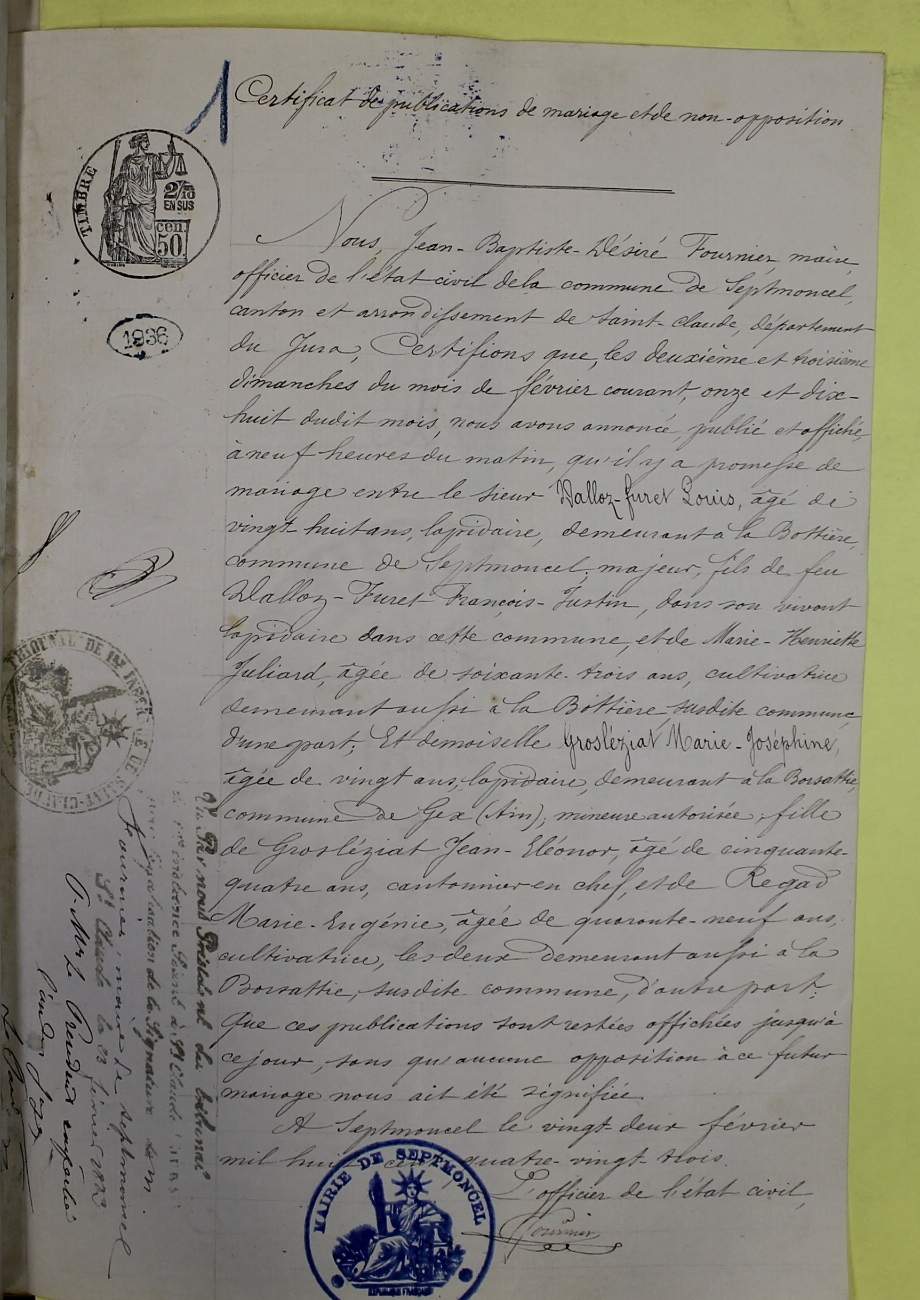 1
Certificat de publications de mariage et de non-opposition
TIMBRE
2/10
EN SUS
cen.
50
1936
Nous, Jean-Baptiste-Désiré Fournier, maire,
officier de l'état civil de la commune de Septmoncel,
canton et arrondissement de Saint-Claude, département
du Jura, Certifions que, les deuxième et troisième
dimanches du mois de février courant, onze et dix-
huit dudit mois, nous avons annoncé, publié et affiché,
à neuf heures du matin, qu'il y a promesse de
mariage entre le sieur Dalloz-furet Louis, âgé de
vingt-huit ans, lapidaire, demeurant à la Bottière,
commune de Septmoncel, majeur, fils de feu
Dalloz-Furet François-Justin, dans son vivant
lapidaire dans cette commune, et de Marie-Henriette
Juliard, âgée de soixante-trois ans, cultivatrice
demeurant aussi à la Bottière, susdite commune
d'une part; Et demoiselle Grosléziat Marie-Joséphine,
âgée de vingt ans, lapidaire, demeurant à la Borsattie,
commune de Gex (Ain), mineure autorisée, fille
de Grosléziat Jean-Eléonor, âgé de cinquante-
quatre ans, cantonnier en chef, et de Regad
Marie-Eugénie, âgée de quarante-neuf ans,
cultivatrice, les deux demeurant aussi à la
Borsattie, susdite commune, d'autre part:
Que ces publications sont restées affichées jusqu'à
ce jour, sans qu'aucune opposition à ce futur
mariage nous ait été signifiée.
A Septmoncel le vingt-deux février
mil huit cent quatre-vingt-trois.
L'officier de l'état civil,
Fournier
MAIRIE DE SEPTMONCEL
TRIBUNAL DE 1re INSTANCE DE SAINT-CLAUDE
Vu Par nous Président du tribunal
de 1re instance Séant à St Claude (Jura)
pour légalisation de la Signature de M
Fournier, maire de Septmoncel
St Claude le 23 février 1883
P. Mr le Président empêché